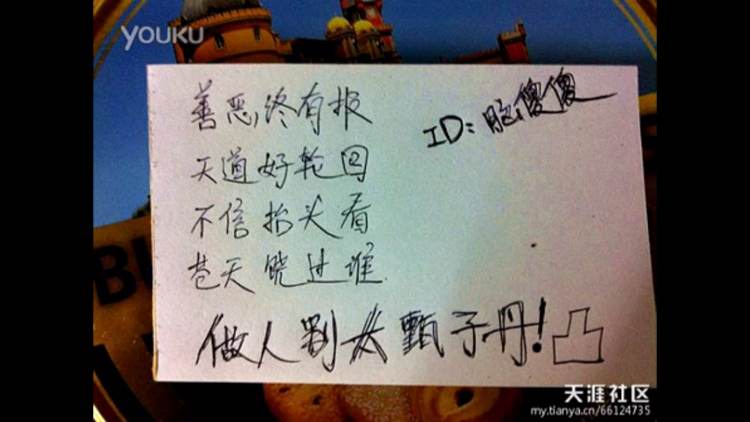 YOUKU
善恶终有报
ID:脑傻傻
天道好轮回
不信抬头看
苍天饶过谁
做人别太甄子丹!凸
天涯社区
my.tianya.cn/66124735